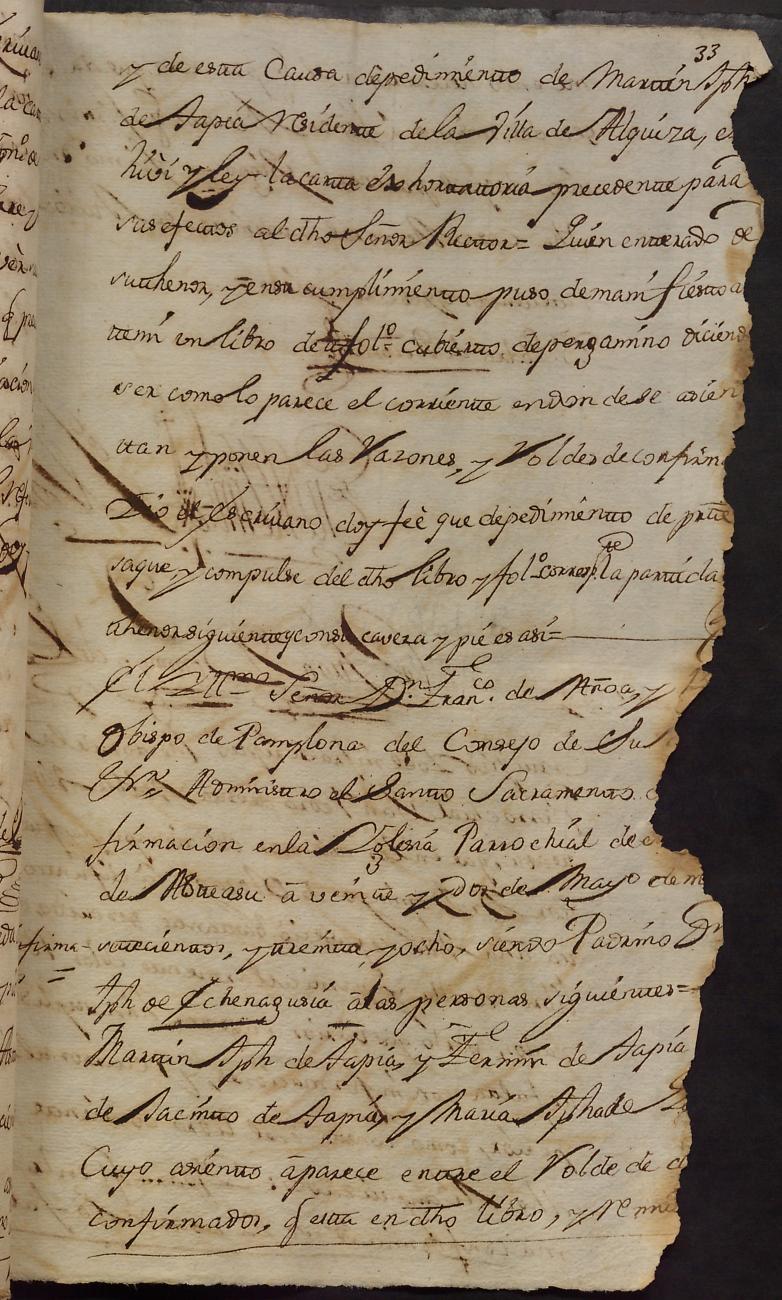 33
y de esta Causa depedimiento de Martin Jph
de Tapia Residente de la Villa de Alquiza,
hize y ley la carta exhortatoria precedente para
sus efectos al dho Señor Rector= Quien enterado de
su thenor, y en su cumplimiento puso demanifiesto a
temi un libro de fol.º cubierto de pergamino diciend
ser como lo parece el corriente en donde se asien
tan y ponen las Razones, y Roldes de confirm
Dio el Escrivano doy feè que depedimiento de
saque, y compulse del dho libro y fol.º corresp.te la partida
thenor siguiente y con su cavera y pie es asi=
El Yll.mo Señor D.n Fran.co de Añoa, y
Obispo de Pamplona del Consejo de Su
Administro el Santo Sacramento
firmacion en la Yglesia Parrochial de
de Asteasu à veinte y dos de Mayo de m
firma- setecientos, y treinta y ocho, siendo Padrino D
=
Jph de Echenagusia à las personas siguientes=
Martin Jph de Tapia, y Fermin de Tapia
de Jacinto de Tapia, y Maria Jpha de
Cuyo asiento aparece entre el Rolde de
confirmados, q esta en dho libro, y remi